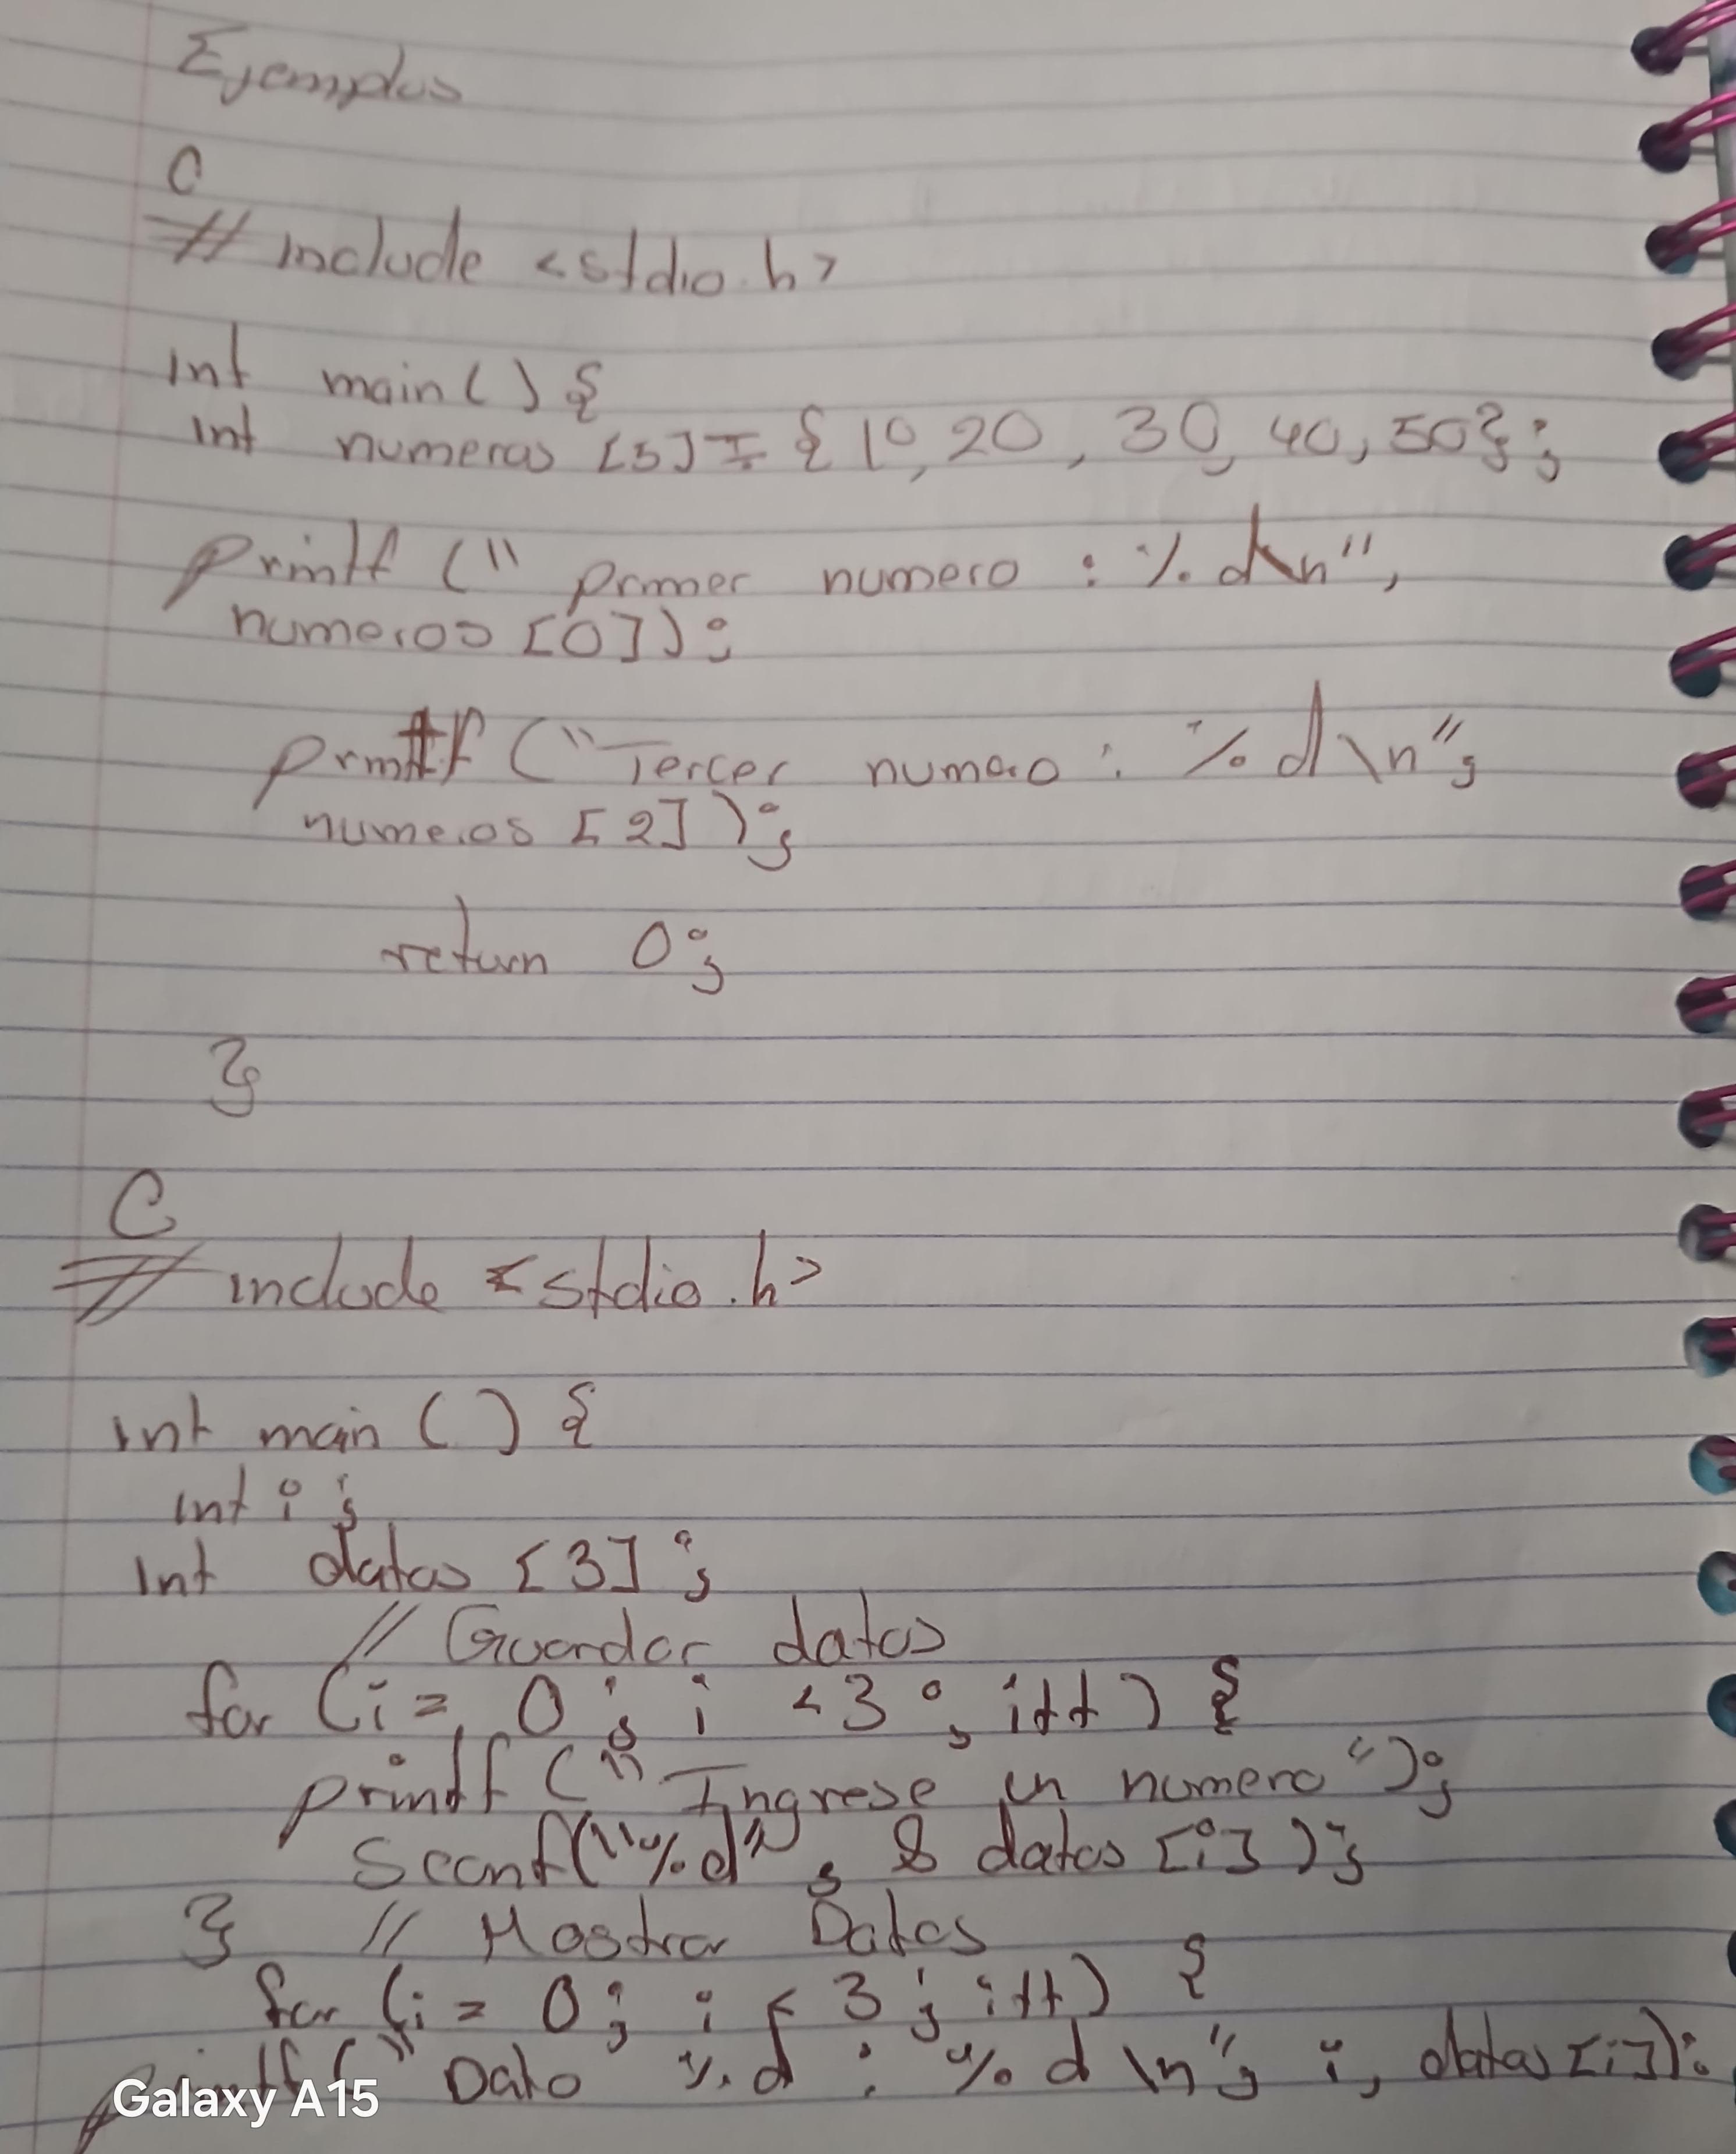 Ejemplos
C
# include <stdio.h>
int main() {
int numeros [5] = {10, 20, 30, 40, 50};
printf (" primer numero : %d\n",
numeros [0]);
printf ("Tercer numero : %d\n",
numeros [2]);
return 0;
}
C
# include <stdio.h>
int main () {
int i;
int datos [3];
// Guardar datos
for (i = 0; i < 3; i++) {
printf (" Ingrese un numero");
Scanf("%d", & datos [i]);
} // Mostrar Datos
for (i = 0; i < 3; i++) {
printf (" Dato %d : %d \n", i, datos [i]);
Galaxy A15